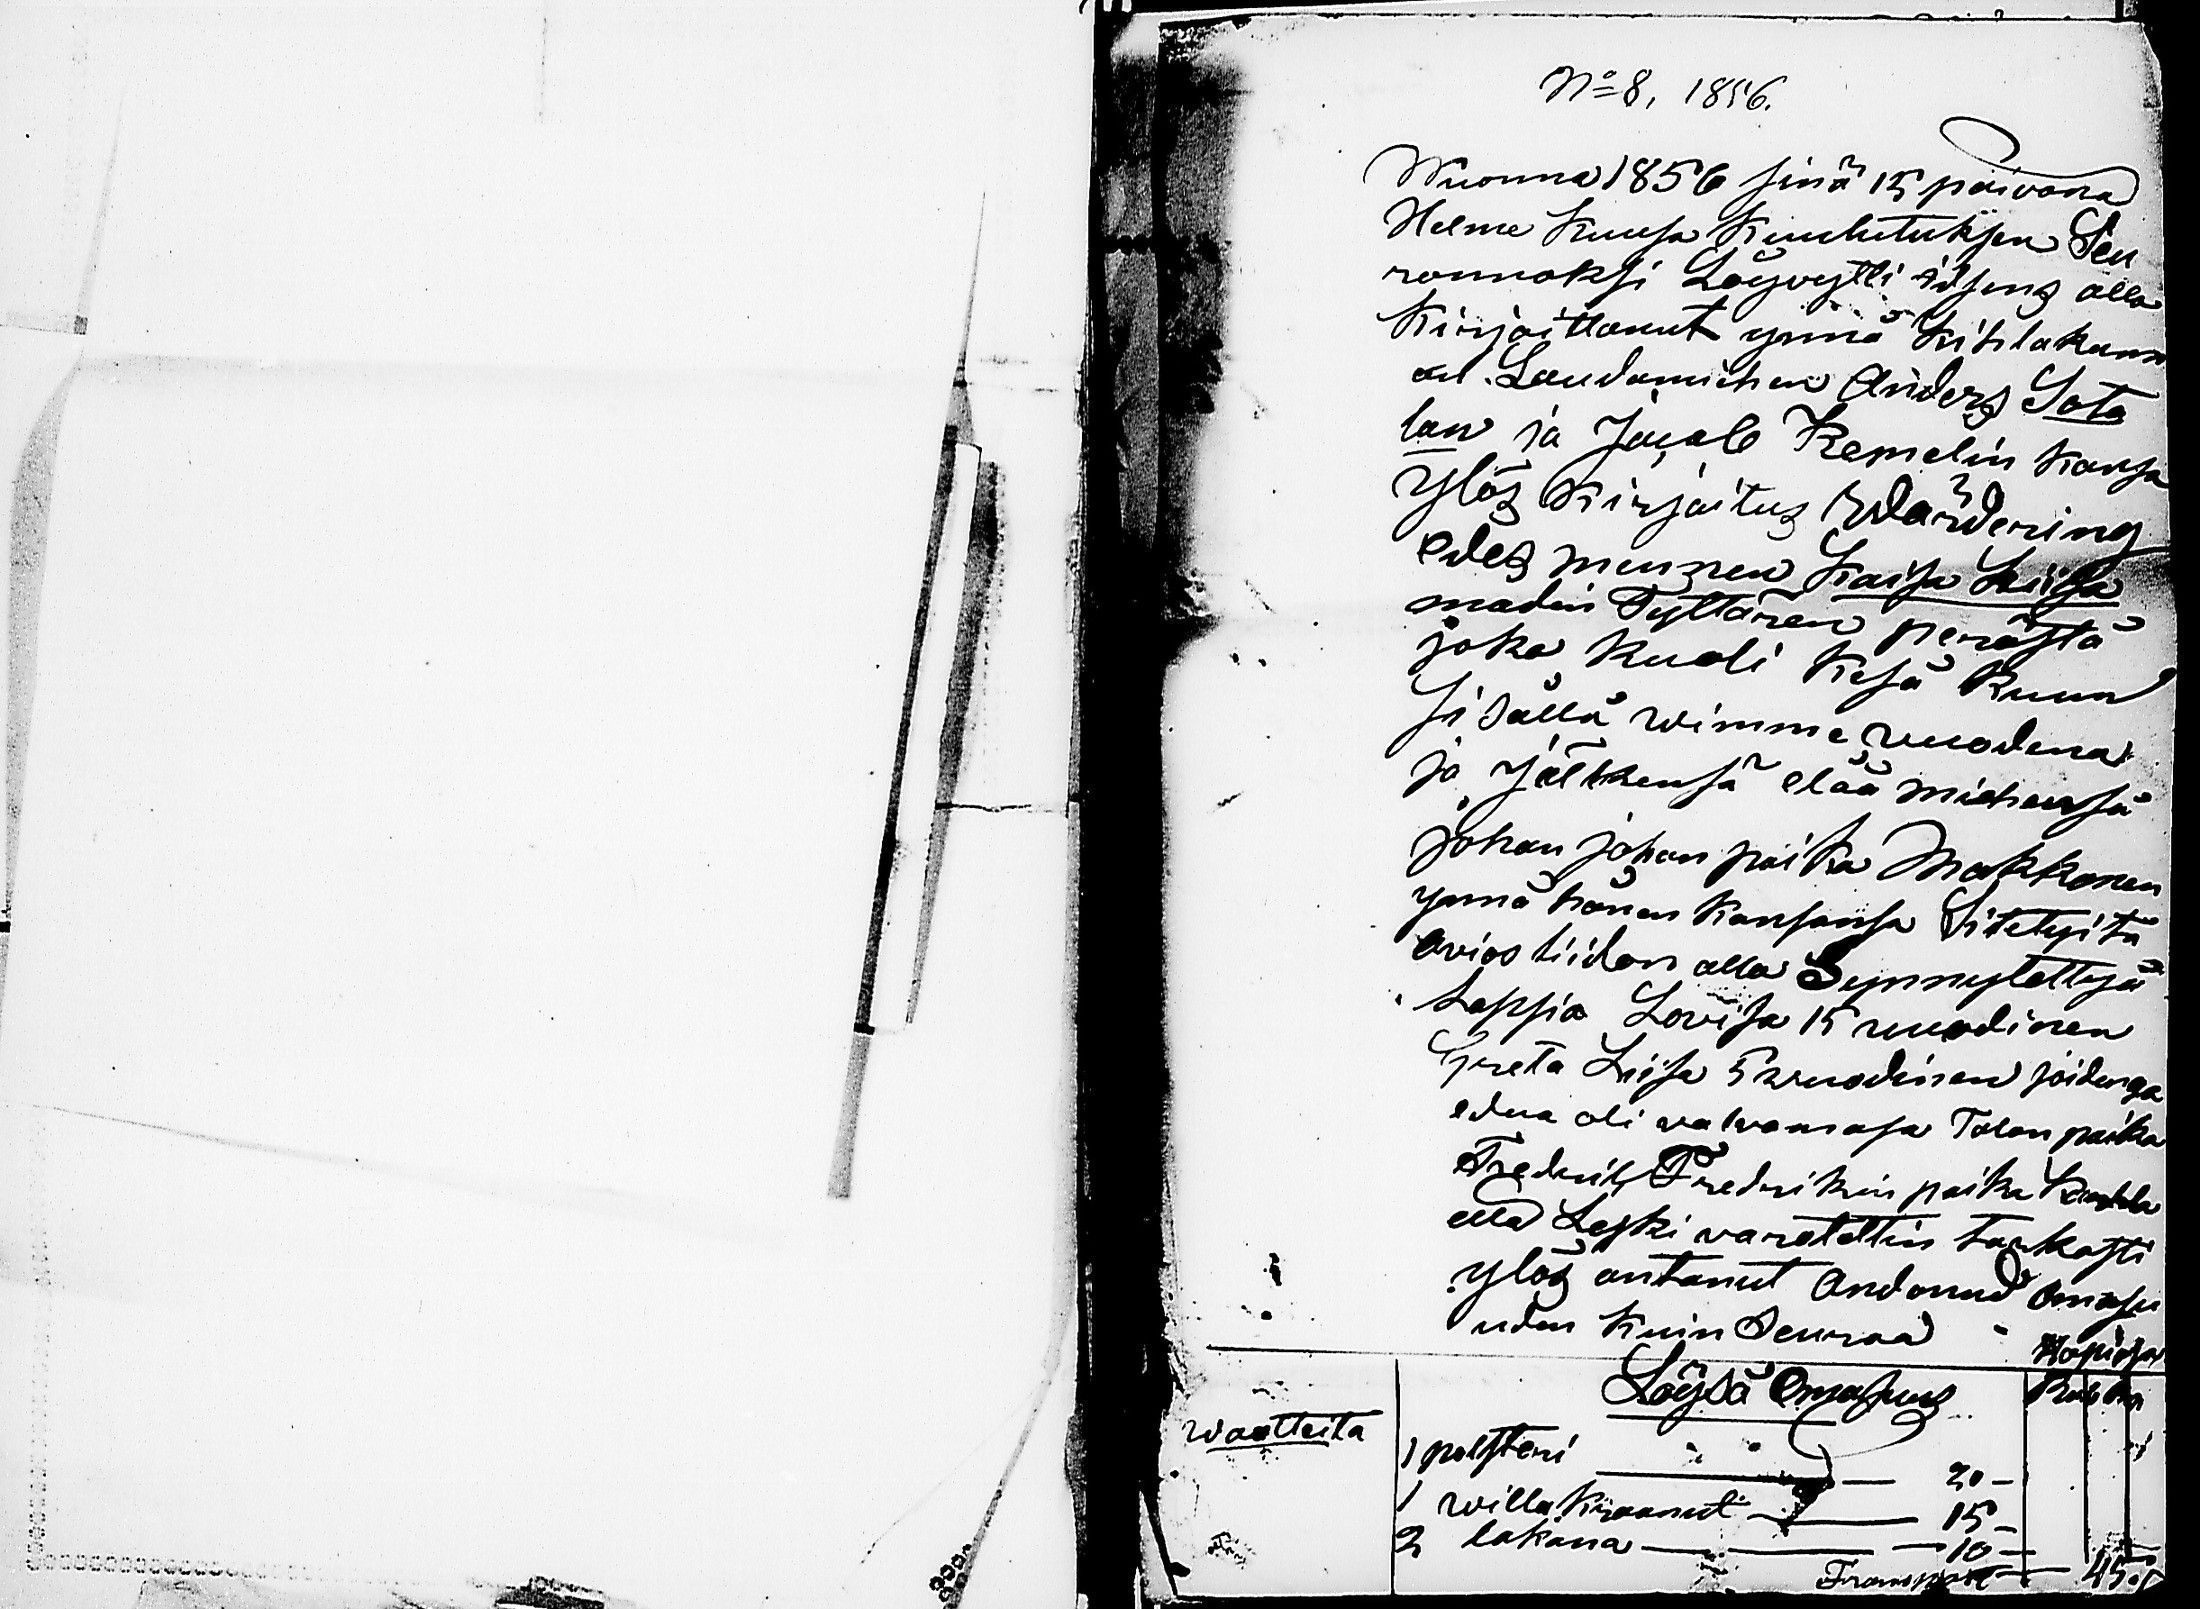 No 8, 1856.
Wuonna 1856 sinä 15 päivänä
Helme Kuusa Kuulutuksen Seu
rannoksi Löysytti itsens alla
Kirjoittanut ynnä Kihlakunn
an Laudamiehen Anders Sota
lan ja Jacob Kemelin Kansa
Ylös Kirjoitus Wärdering
edes mennen Kaisa Liisa
madin Tyttären perästä
joka Kuoli Kesä Kuun
sisällä wimme vuodena
ja Jälkensä elää miehensä
Johan Johan poika Makkonen
ynnä hänen Kansansa Sitetyitä
avios liidon alla Synnytettyjä
Lapsia Lovisa 15 vuodinen
Greta Liisa 5 vuodinen joidenga
edua oli valvomasa Talon poika
Fredrik Fredrikin poika
ella Leski varotettin tarkasti
ylös antanut Andanud omasu
uden Kuin Seuraa
Hopiasa
Löysä Omasuus
waatteita
1 polsteri 20
1 willa Kraanut 15
2 lakana 10
Transport 45